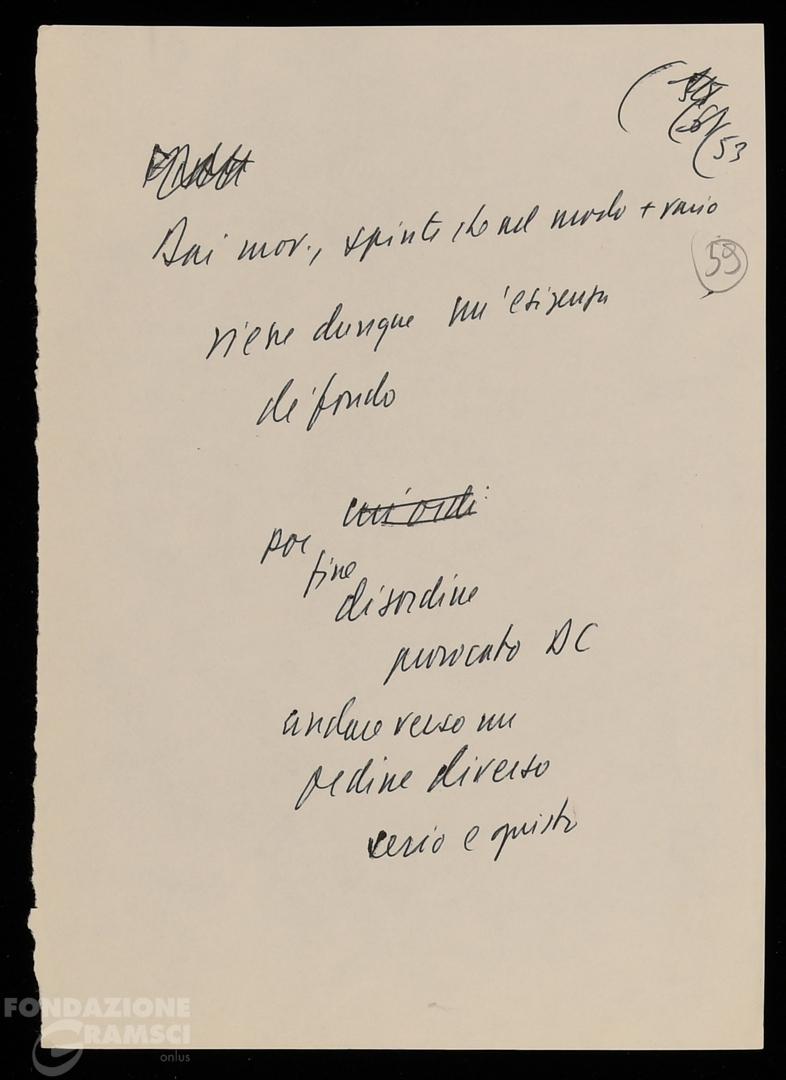 (53
Dai mov., spinte che nel modo + vario
59
viene dunque un'esigenza
di fondo
un'ordi
por fine
disordine
provocato DC
andare verso un
ordine diverso
serio e giusto
FONDAZIONE
GRAMSCI
onlus